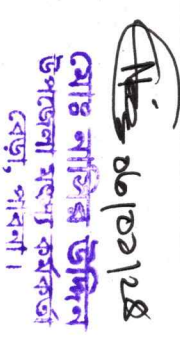 ০৬/০২/২৪
মোঃ নাসির উদ্দিন
উপজেলা মৎস্য কর্মকর্তা
বেড়া, পাবনা।